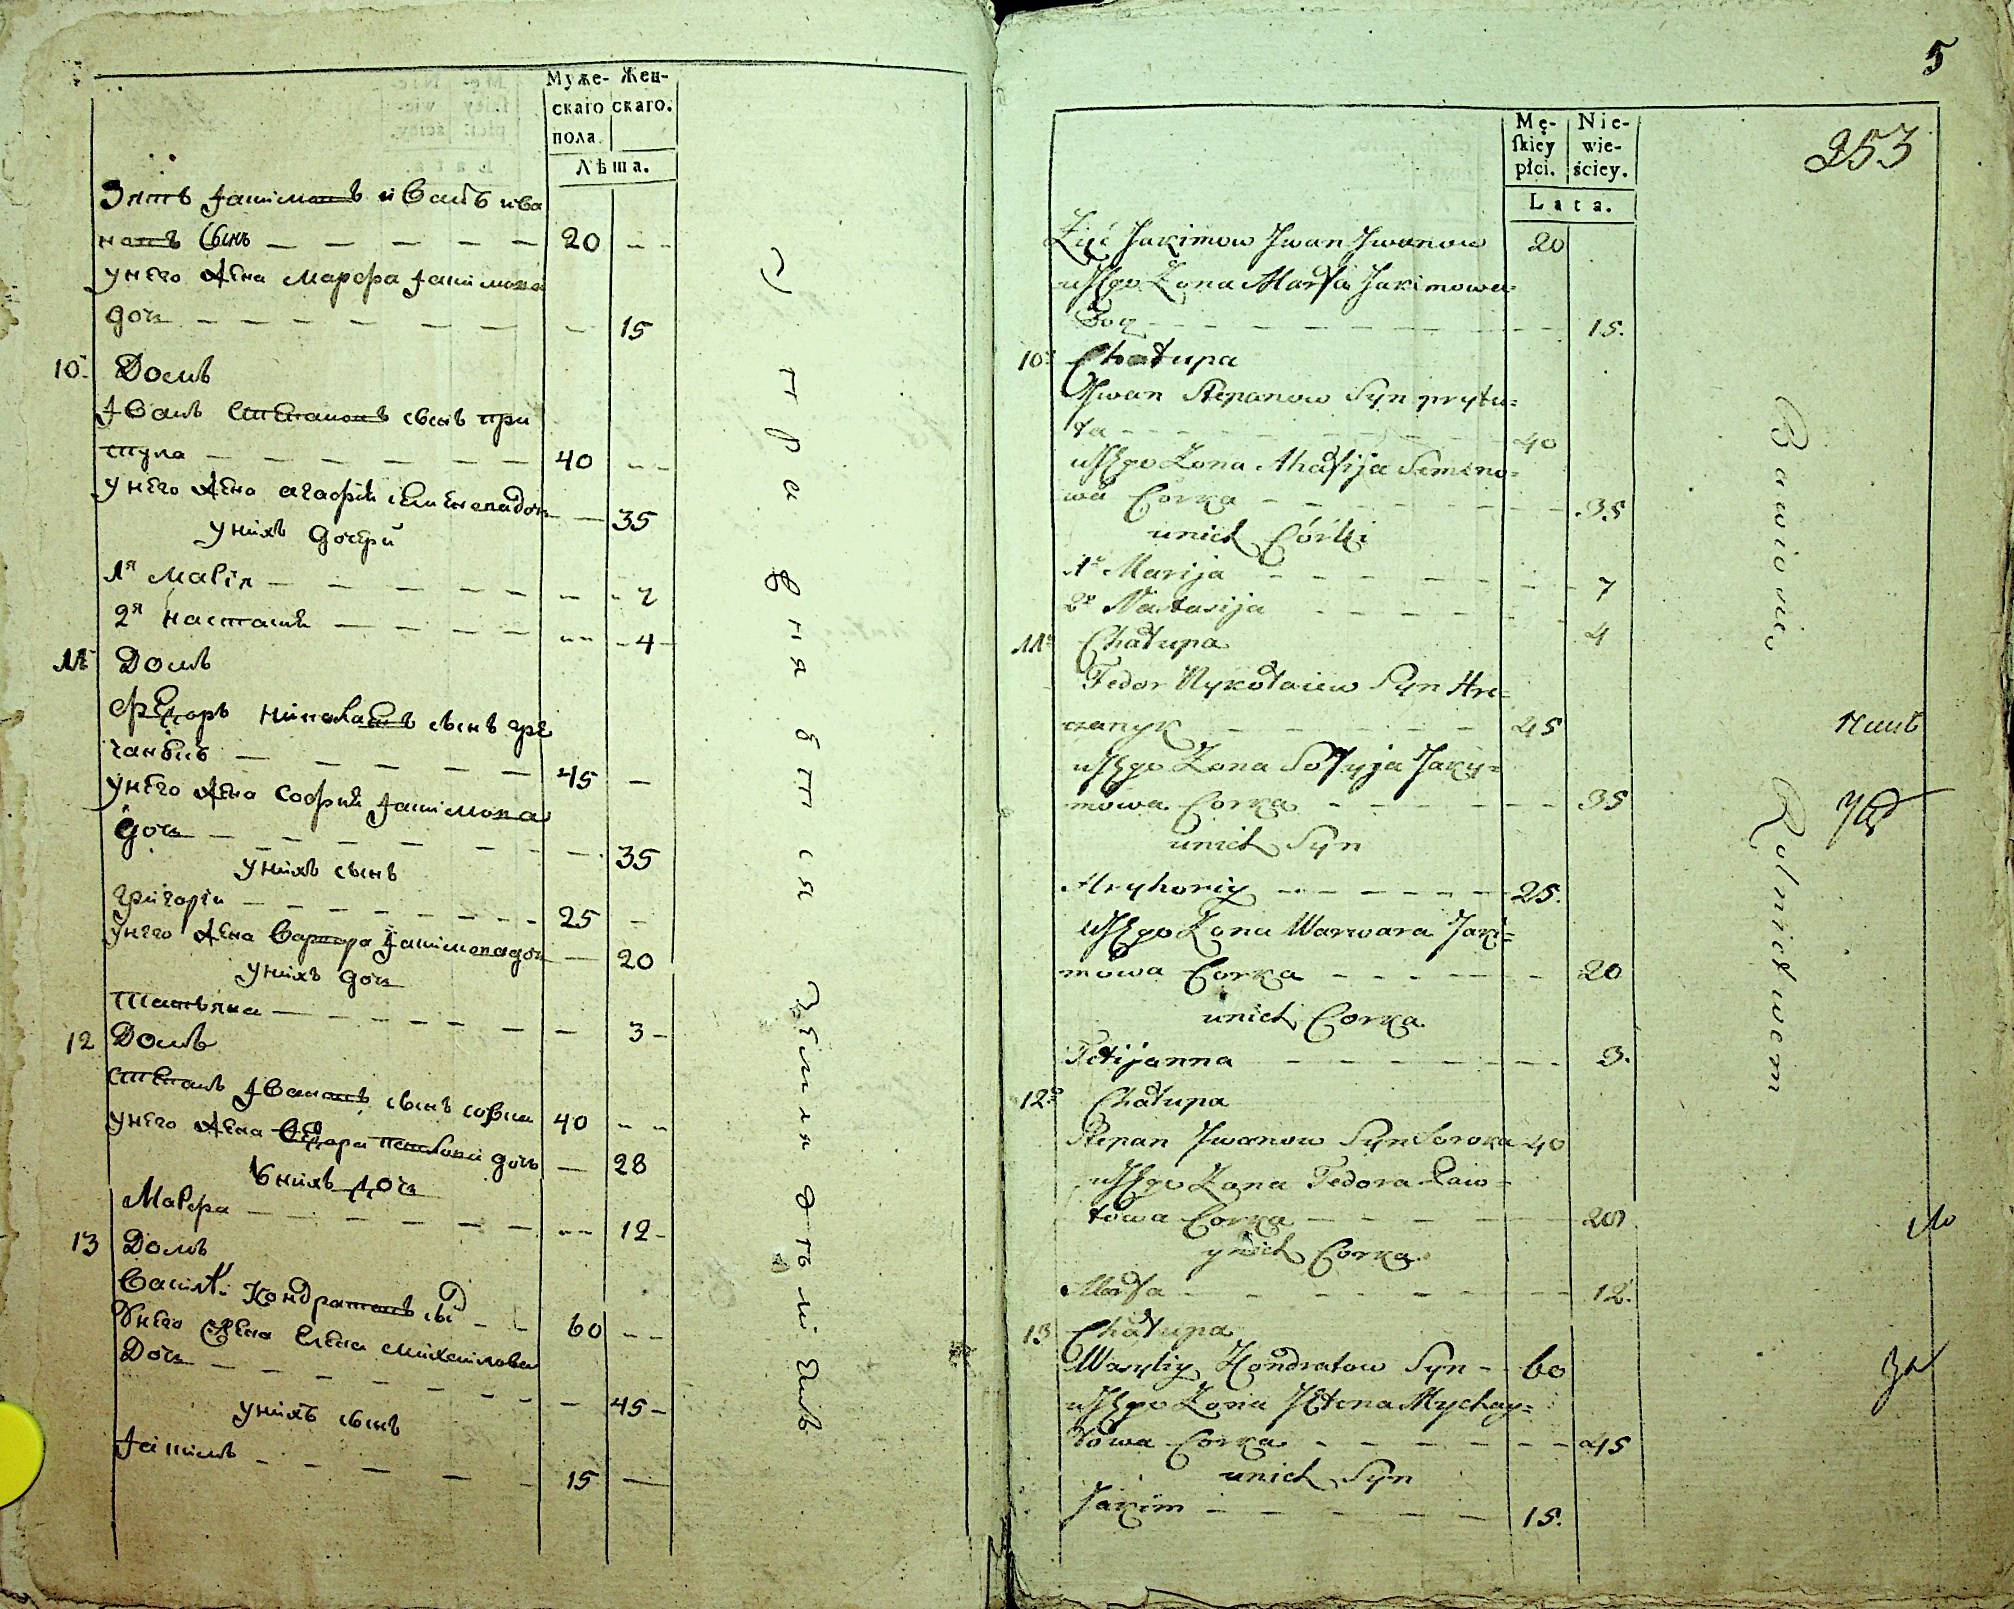 Муже- Жен-
скаго скаго.
пола.
Лѣта.
Зять Якимовъ Иванъ Ива
новъ сынъ — — — — — 20 - -
унего жена Марфа Якимова
дочь — — — — — — — — 15
10. Домъ
Иванъ Степановъ сынъ при
тула — — — — — — 40 - -
унего жена Агафия Семеновадочь — 35
унихъ дочери
1я Мария — — — — — - - 7
2я Настасия — — — — - - 4
11. Домъ
Федоръ Николаевъ сынъ гре
чаникъ — — — — — — 45 —
унего жена София Якимова
дочь — — — — — — — 35
унихъ сынъ
Григории — — — — — — 25 -
унего жена Варвара Якимовадочь — 20
унихъ дочь
Татьяна — — — — — — 3 -
12 Домъ
Степанъ Ивановъ сынъ сорока 40 - -
унего жена Федора Павлова дочь — 28
унихъ дочь
Марфа — — — — — — - - 12 -
13 Домъ
Василий Кондратовъ сынъ — — 60 - -
унего жена Елена Михайлова
Дочь — — — — — — — 45 -
унихъ сынъ
Якимъ — — — — — 15 —
управняются земледѣлиемъ
5
253
Mę- Nie-
skiey wie-
płci. ściey.
Lata.
Zięć Jakimow Jwan Jwanow 20
uJego Zona Marfa Jakimowa=
Doq — — — — — — — 15.
10° Chałupa
Jwan Stepanow Syn prytu=
ła — — — — — — — 40
uJego Zona Ahafija Semeno=
wa Corka — — — — — — 35
unich Córki
1° Marija — — — — — — 7
2° Nastasija — — — — — 4
11° Chałupa
Fedor Nykołaiew Syn Hre=
czanyk — — — — — — 45
uJego Zona Sofyja Jaky=
mowa Corka — — — — — 35
unich Syn
Hryhoriy — — — — — — 25.
uJego Zona Warwara Jaki=
mowa Corka — — — — — 20
unich Corka
Tetijanna — — — — — — 3.
12° Chałupa
Stepan Jwanow Syn Soroka 40
uJego Zona Fedora Paw=
łowa Corka — — — — — 28
ynich Corka
Marfa — — — — — — — 12.
13 Chałupa
Wasyliy Kondratow Syn — 60
uJego Zona JEłena Mychay=
łowa Corka — — — — — — 45
unich Syn
Jakim — — — — — — 15.
Bawiąsię Rolnictwem